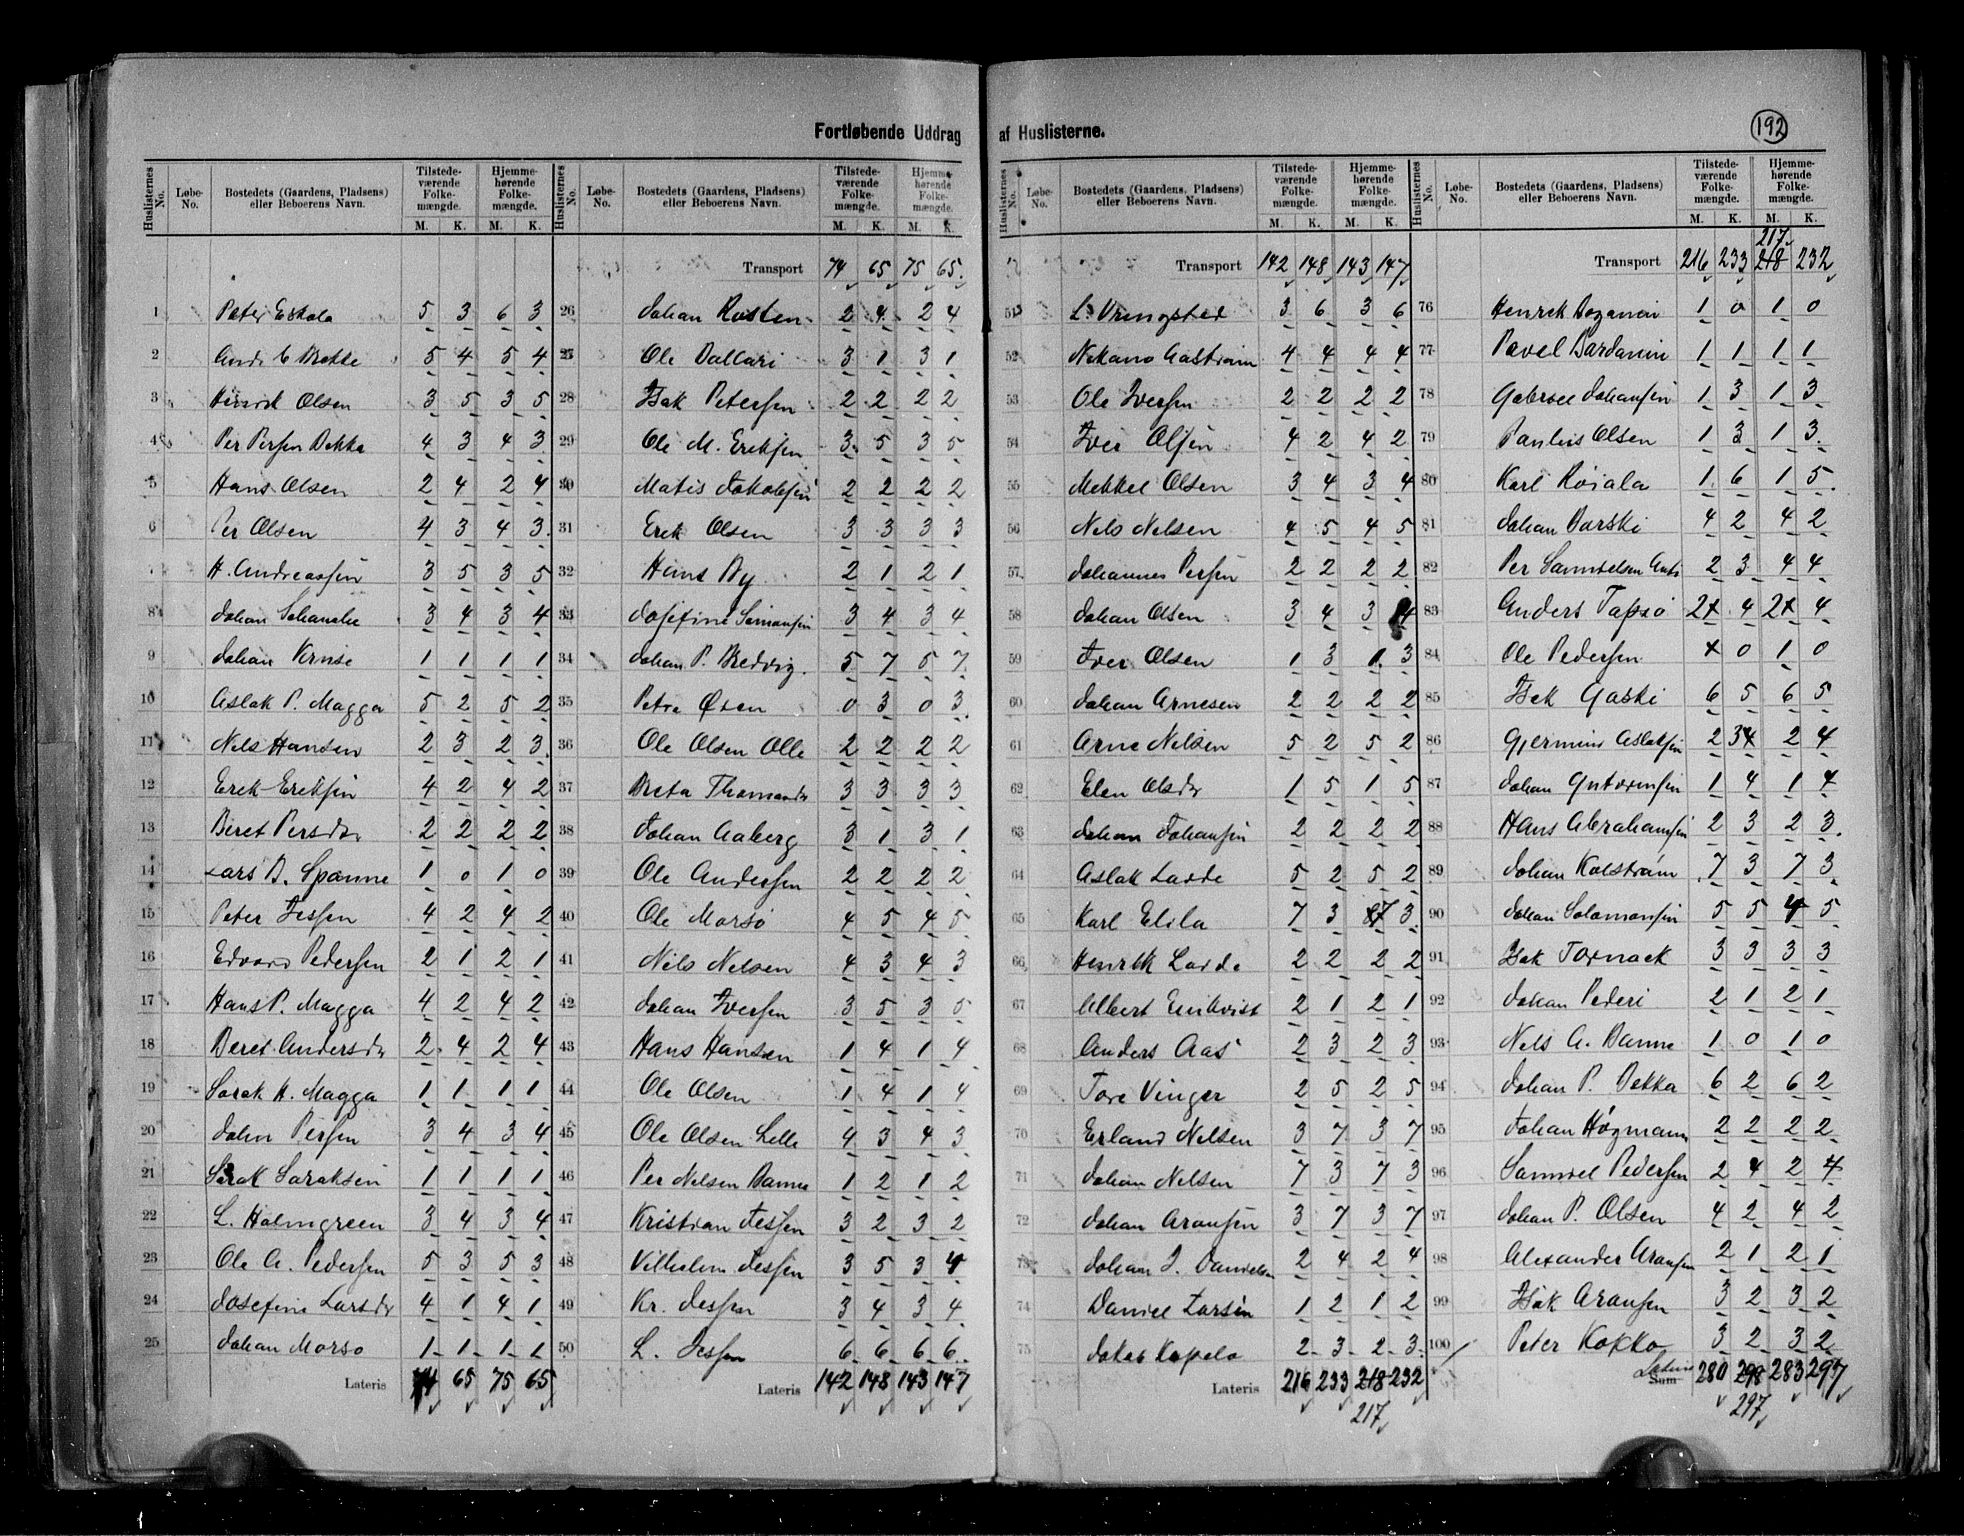 Fortløbende Uddrag af Huslisterne.
192
Huslisternes No. Løbe-No. Bostedets (Gaardens, Pladsens) eller Beboerens Navn. Tilstedeværende Folkemængde. M. K. Hjemmehørende Folkemængde. M. K.
1 Peter Eskola 5 3 6 3
2 5 4 5 4
3 Henrik Olsen 3 5 3 5
4 Per Persen Bekka 4 3 4 3
5 Hans Olsen 2 4 2 4
6 Per Olsen 4 3 4 3
H. Andreassen 3 5 3 5
8 Johan 3 4 3 4
9 Johan Kruse 1 1 1 1
10 Aslak P. Magga 5 2 5 2
11 Nels Hansen 2 3 2 3
12 Erek Ereksen 4 2 4 2
13 Beret Persdr 2 2 2 2
14 Lars B. Spanne 1 0 1 0
15 Peter Jessen 4 2 4 2
16 Edvard Pedersen 2 1 2 1
17 Hans P. Magga 4 2 4 2
18 Beret Andersdr 2 4 2 4
19 Sarak H. Magga 1 1 1 1
20 John Persen 3 4 3 4
21 Sarak Saraksen 1 1 1 1
22 L. Holmgreen 3 4 3 4
23 Ole A. Pedersen 5 3 5 3
24 Josefine Larsdr 4 1 4 1
25 Johan Morso 1 1 1 1
Lateris 74 65 75 65
Huslisternes No. Løbe-No. Bostedets (Gaardens, Pladsens) eller Beboerens Navn. Tilstedeværende Folkemængde. M. K. Hjemmehørende Folkemængde. M. K.
Transport 74 65 75 65
26 Johan Rosten 2 4 2 4
27 Ole Dallari 3 1 3 1
28 Isak Petersen 2 2 2 2
29 Ole M. Eriksen 3 5 3 5
30 Matis Jakobsen 2 2 2 2
31 Erek Olsen 3 3 3 3
32 Hans By 2 1 2 1
33 Josefine Simonsen 3 4 3 4
34 Johan P. Bredvig 5 7 5 7
35 Petra Olsen 0 3 0 3
36 Ole Olsen Olle 2 2 2 2
37 Breta Thomasdr 3 3 3 3
38 Johan Aaberg 3 1 3 1
39 Ole Andersen 2 2 2 2
40 Ole Morsø 4 5 4 5
41 Nils Nelsen 4 3 4 3
42 Johan Iversen 3 5 3 5
43 Hans Hansen 1 4 1 4
44 Ole Olsen 1 4 1 4
45 Ole Olsen Lille 4 3 4 3
46 Per Nelsen Banne 1 2 1 2
47 Kristian Jessen 3 2 3 2
48 Vilhelm Jessen 3 5 3 4
49 Kr. Jessen 3 4 3 4
50 L. Jessen 6 6 6 6
Lateris 142 148 143 147
Huslisternes No. Løbe-No. Bostedets (Gaardens, Pladsens) eller Beboerens Navn. Tilstedeværende Folkemængde. M. K. Hjemmehørende Folkemængde. M. K.
Transport 142 148 143 147
51 L. Vringsted 3 6 3 6
52 4 4 4 4
53 Ole Iversen 2 2 2 2
54 Iver Olsen 4 2 4 2
55 Mekkel Olsen 3 4 3 4
56 Nels Nelsen 4 5 4 5
57 Johannes Persen 2 2 2 2
58 Johan Olsen 3 4 3 4
59 Iver Olsen 1 3 1 3
60 Johan Arnesen 2 2 2 2
61 Arne Nelsen 5 2 5 2
62 Elen Olsdr 1 5 1 5
63 Johan Johansen 2 2 2 2
64 Aslak Larde 5 2 5 2
65 Karl Elila 7 3 7 3
66 Henrik Larde 2 2 2 2
67 Albert Enkvist 2 1 2 1
68 Anders Aas 2 3 2 3
69 Tore Vinger 2 5 2 5
70 Erland Nelsen 3 7 3 7
71 Johan Nelsen 7 3 7 3
72 Johan Aronsen 3 7 3 7
73 Johan J. Danielsen 2 4 2 4
74 Daniel Larsen 1 2 1 2
75 Jakob Kapelo 2 3 2 3
Lateris 216 233 218 232
217
Huslisternes No. Løbe-No. Bostedets (Gaardens, Pladsens) eller Beboerens Navn. Tilstedeværende Folkemængde. M. K. Hjemmehørende Folkemængde. M. K.
217
Transport 216 233 218 232
76 Henrek 1 0 1 0
77 Pavel 1 1 1 1
78 Gabrael Johansen 1 3 1 3
79 Paulus Olsen 1 3 1 3
80 Karl Roiala 1 6 1 5
81 Johan Barski 4 2 4 2
82 Per Samuelsen 2 3 4 4
83 Anders Tapsø 2 4 2 4
84 Ole Pedersen 0 1 0
85 Isak Gaski 6 5 6 5
86 Aslaksen 2 3 2 4
87 Johan 1 4 1 4
88 Hans Abrahamsen 2 3 2 3
89 Johan Kolstrøm 7 3 7 3
90 Johan Salamonsen 5 5 4 5
91 Isak Tornack 3 3 3 3
92 Johan Pederi 2 1 2 1
93 Nels A. Banne 1 0 1 0
94 Johan P. Bekka 6 2 6 2
95 Johan Høgmann 2 2 2 2
96 Samuel Pedersen 2 4 2 4
97 Johan P. Olsen 4 2 4 2
98 Alexander Aronsen 2 1 2 1
99 Isak Aronsen 3 2 3 2
100 Peter Kokko 3 2 3 2
Lateris
Sum 280 298 283 297
297